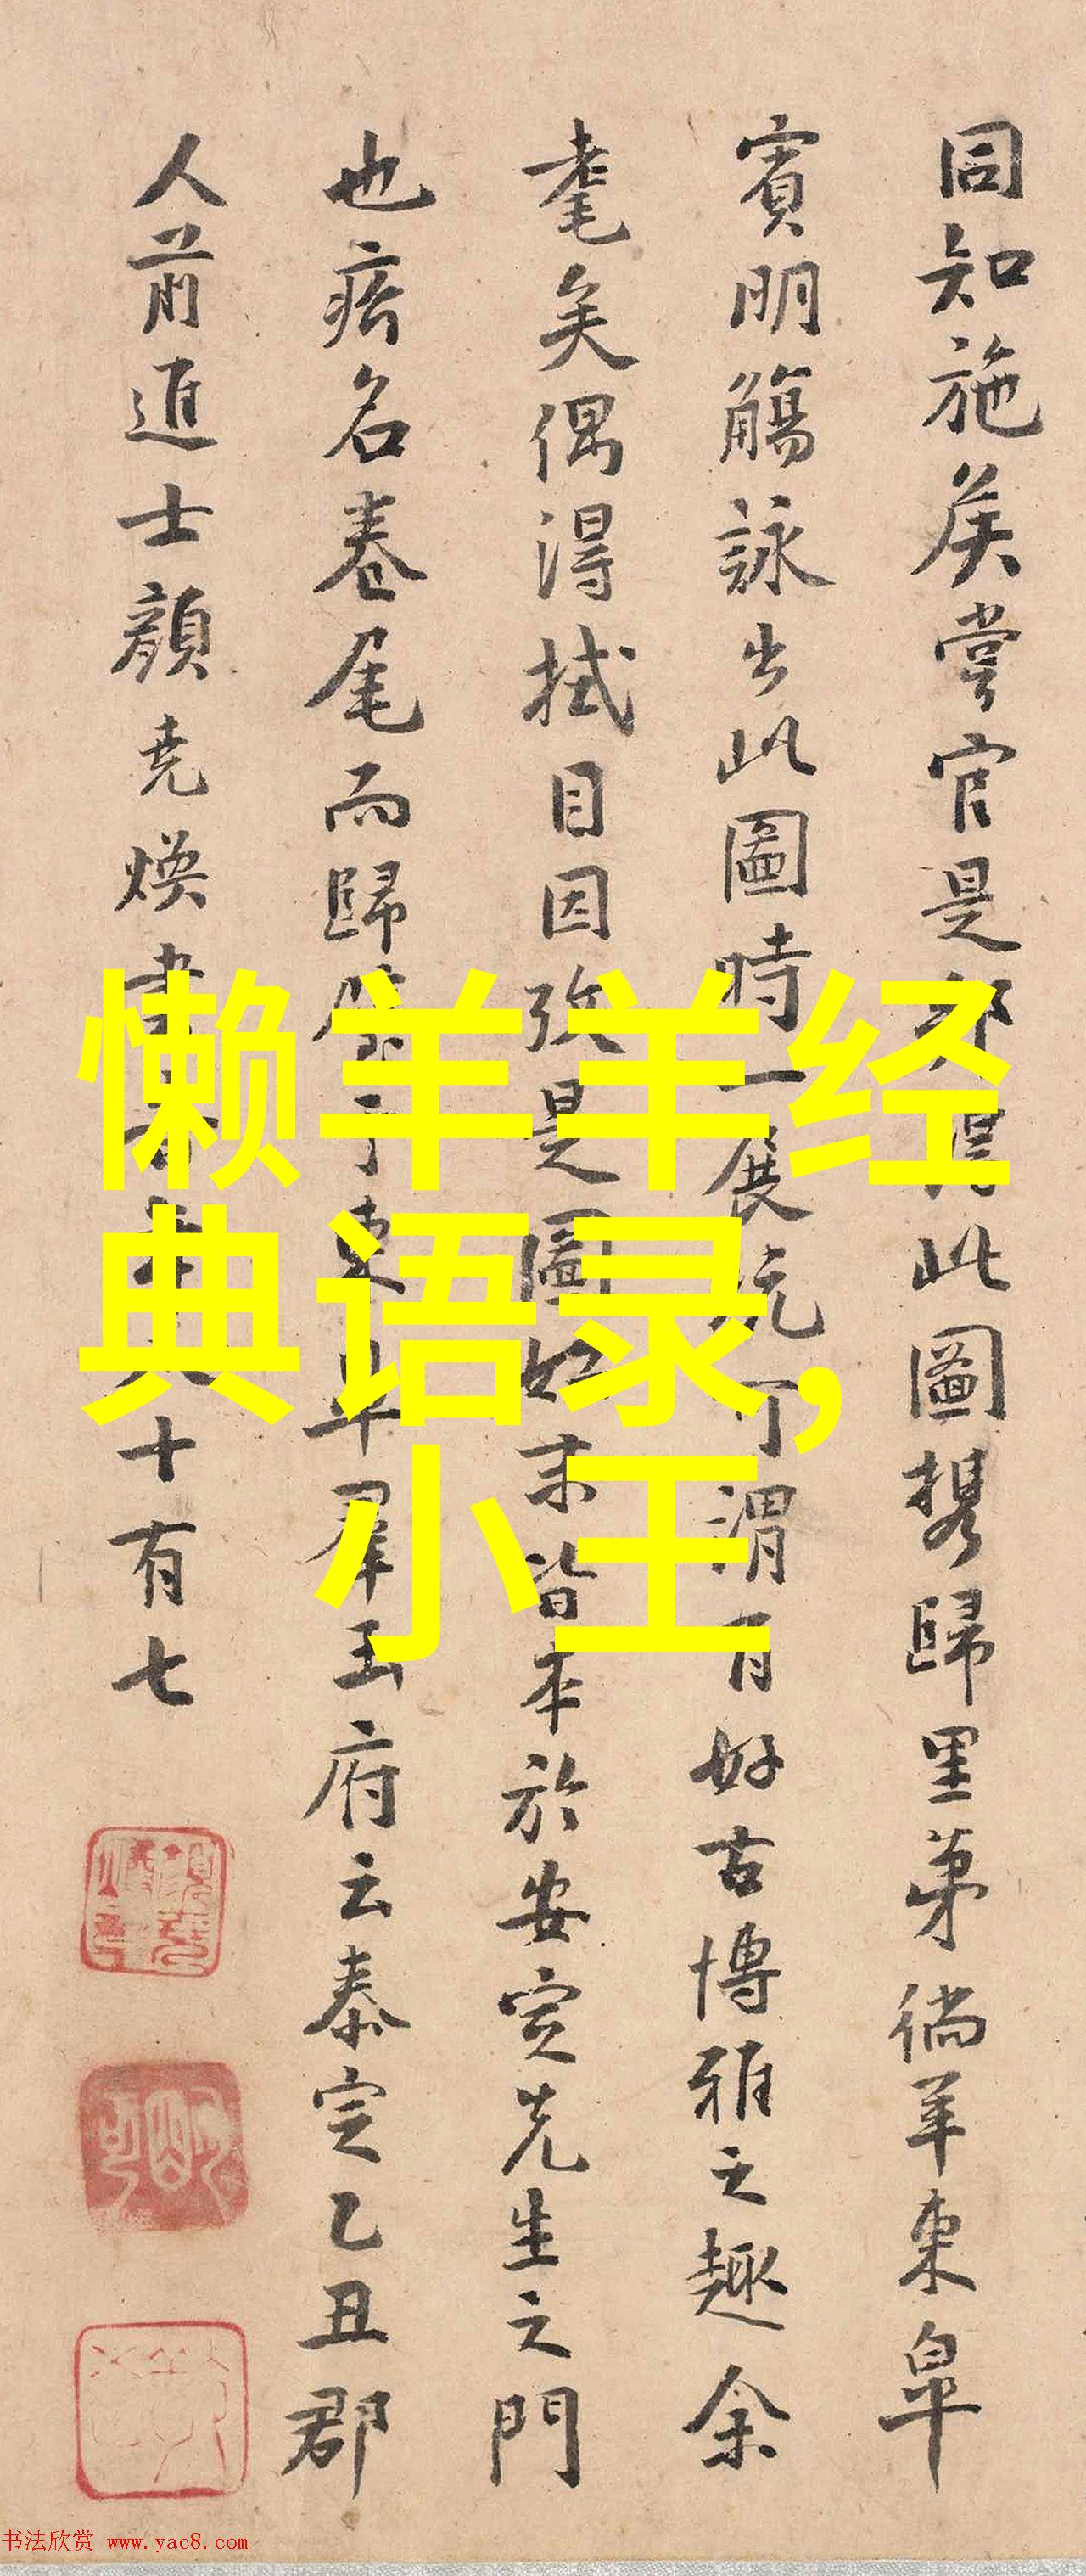 同知施矦嘗官是郡得此圖携歸里苐徜羊東皐
賓明觴詠出此圖時一展玩可謂有好古博雅之趣余
耄矣偶淂拭目因攷是圖如末皆本於安定先生之門
也瘩名卷尾而歸于東皐羣玉府云泰定乙丑郡
人前進士顔尭煥書十有七
懒羊羊经
典语录,
小王
书法欣赏 www.yac8.com